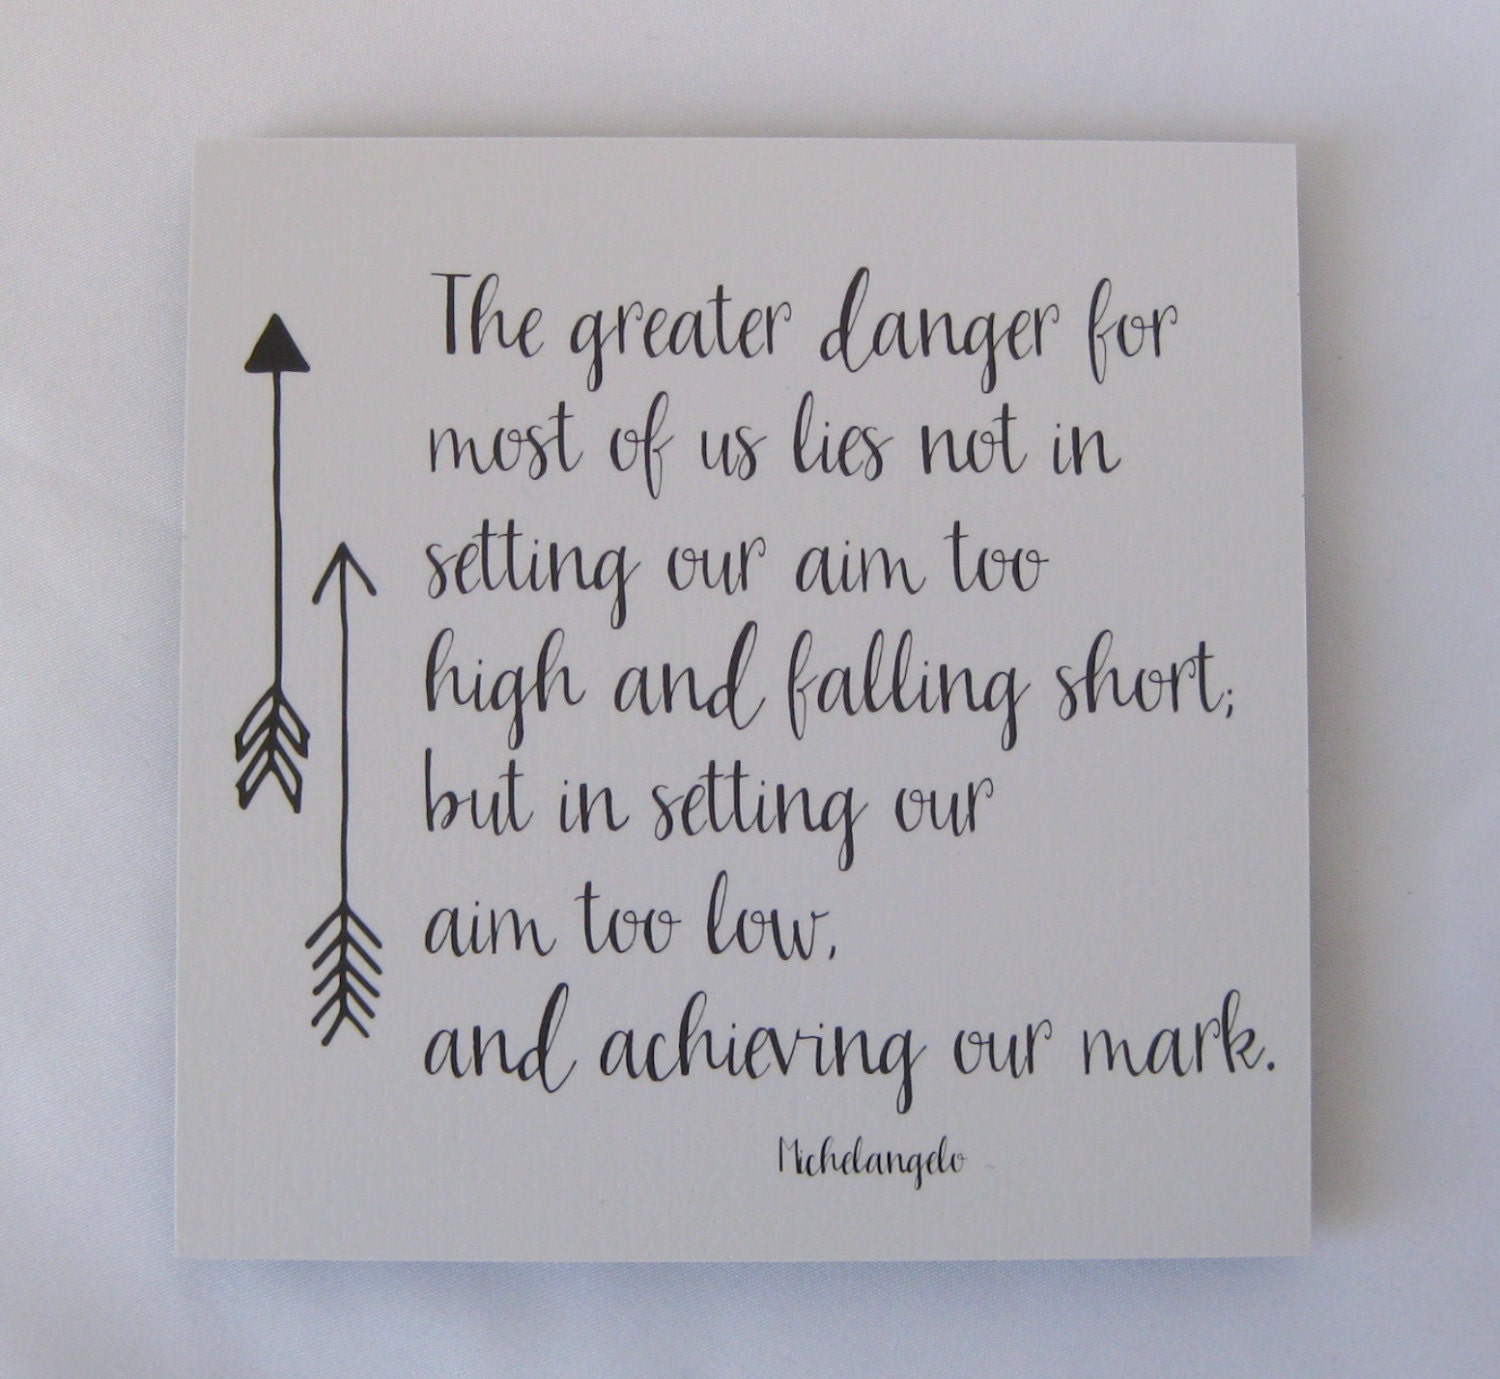 The greater danger for
most of us lies not in
setting our aim too
high and falling short;
but in setting our
aim too low,
and achieving our mark.
Michelangelo